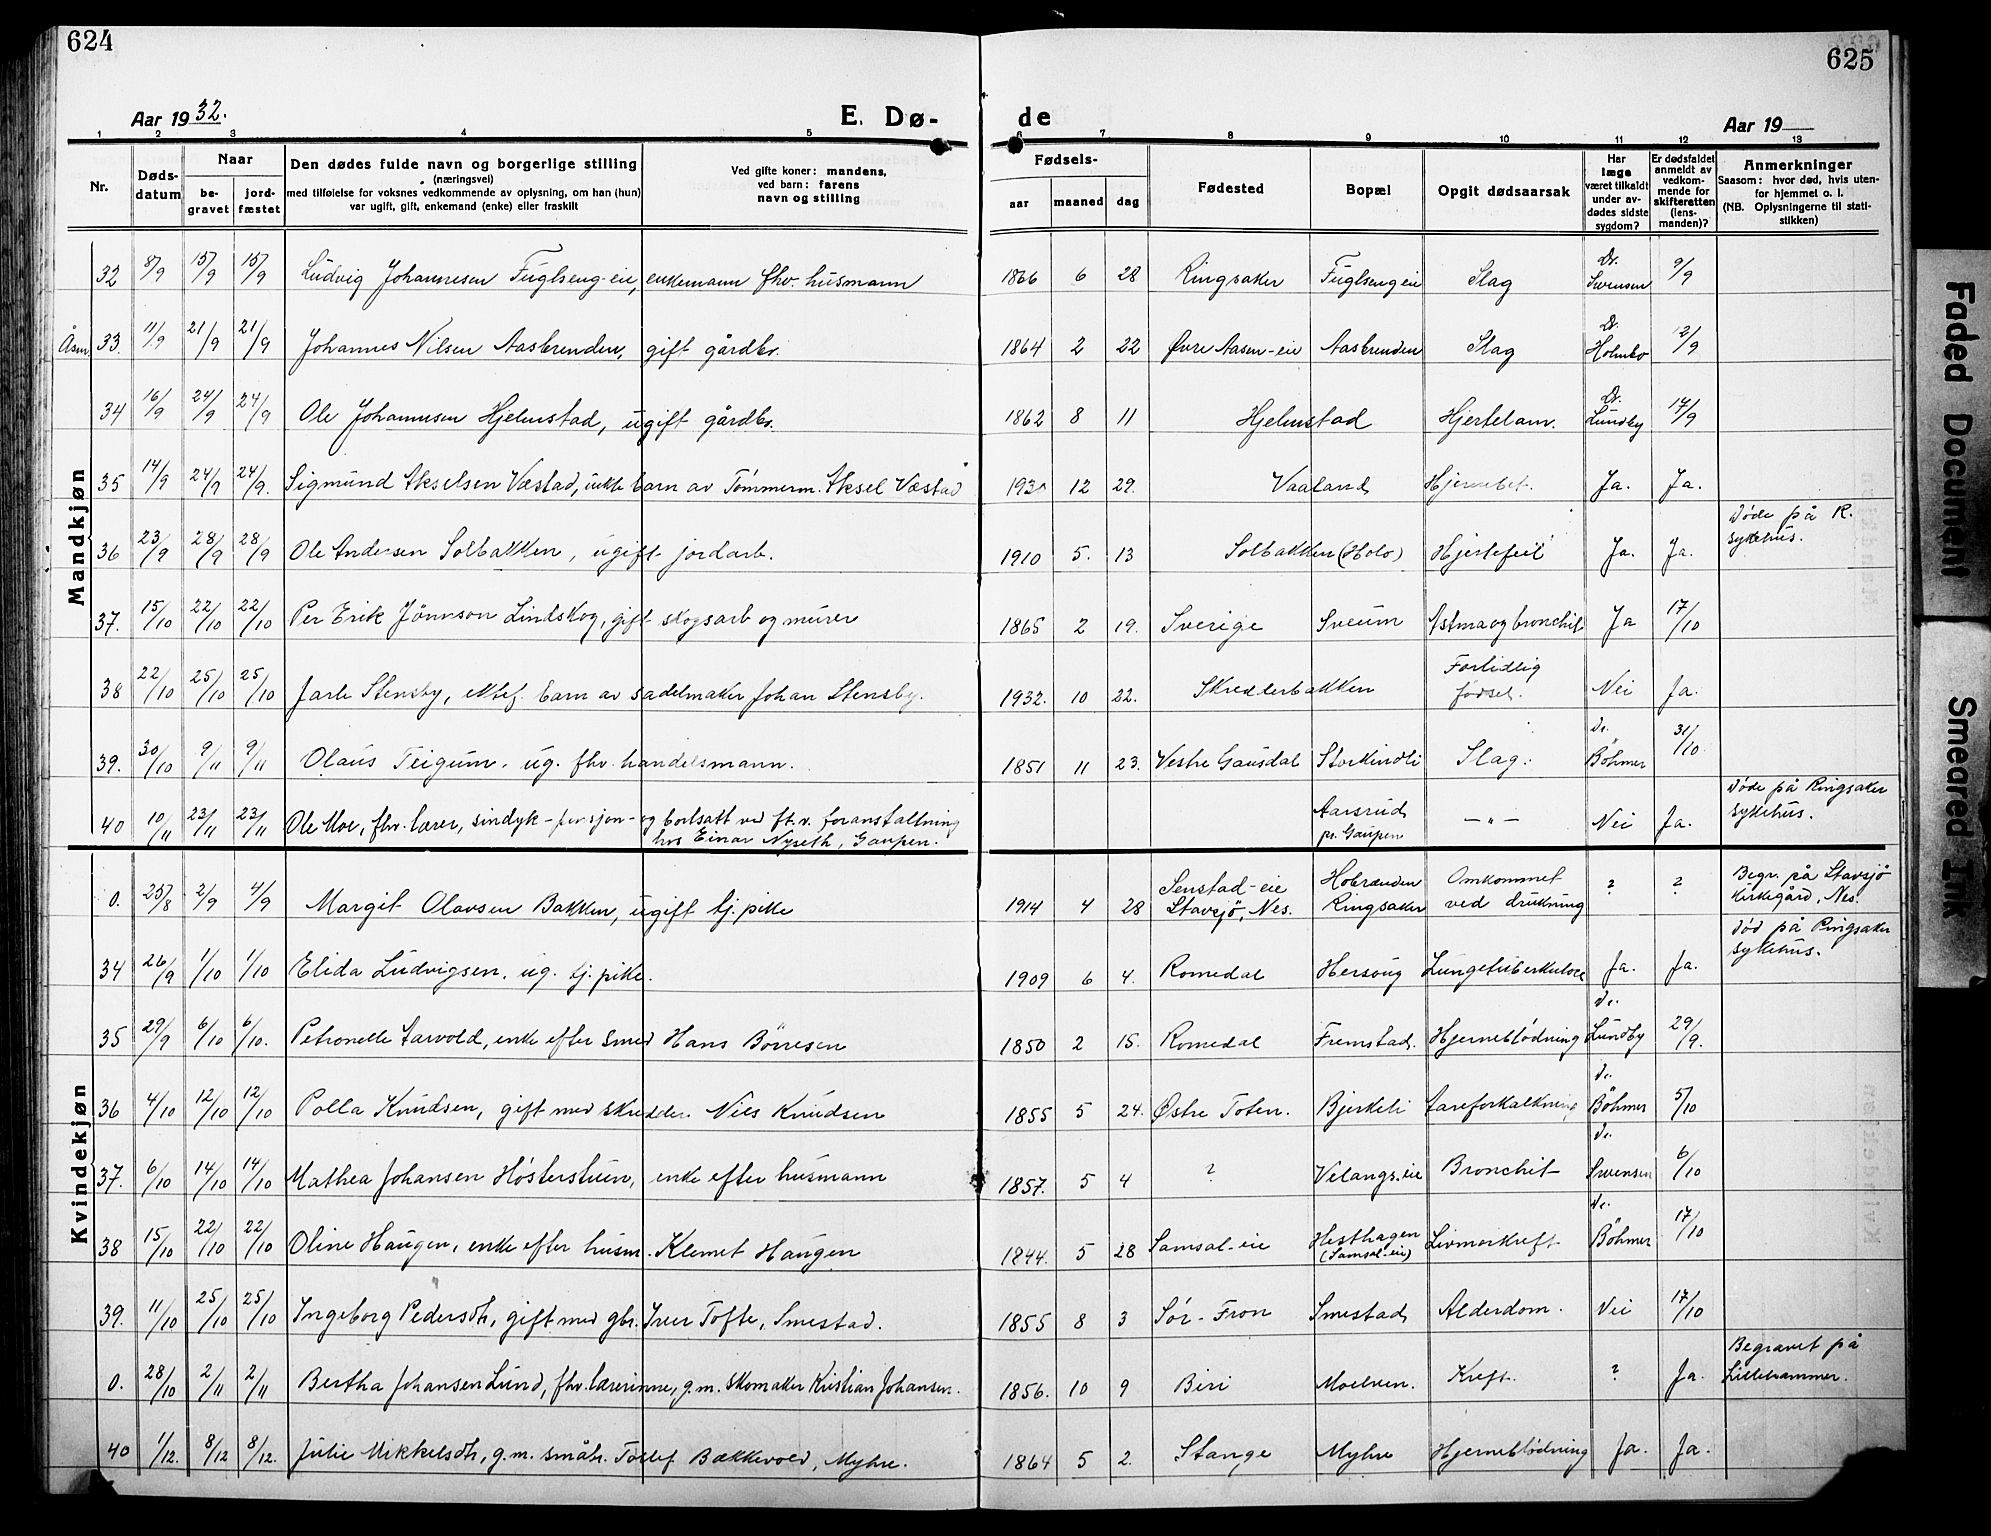 624
625
Aar 1932.
E. Dø-
de
Aar 19
1 2 3 4 5 6 7 8 9 10 11 12 13
Nr.
Døds-
datum
Naar
be-
gravet
jord-
fæstet
Den dødes fulde navn og borgerlige stilling
(næringsvei)
med tilføielse for voksnes vedkommende av oplysning, om han (hun)
var ugift, gift, enkemand (enke) eller fraskilt
Ved gifte koner: mandens,
ved barn: farens
navn og stilling
Fødsels-
aar maaned dag
Fødested
Bopæl
Opgit dødsaarsak
Har
læge
været tilkaldt
under av-
dødes sidste
sygdom?
Er dødsfaldet
anmeldt av
vedkom-
mende for
skifteretten
(lens-
manden)?
Anmerkninger
Saasom: hvor død, hvis uten-
for hjemmet o. l.
(NB. Oplysningerne til stati-
stikken)
Mandkjøn
32 8/9 15/9 15/9 Ludvig Johannesen Fuglseng-eie, enkemann fhv. husmann 1866 6 28 Ringsaker Fuglsengeie Slag Dr. Svensen 9/9
Åsm. 33. 11/9 21/9 21/9 Johannes Nilsen Aasbrenden, gift gårdbr. 1864 2 22 Øvre Aasen-eie Aasbrenden Slag Dr. Holmbo 12/9
34 16/9 24/9 24/9 Ole Johannesen Hjelmstad, ugift gårdbr. 1862 8 11 Hjelmstad Hjertelam. Dr. Lundby 17/9
35 14/9 24/9 24/9. Sigmund Akselsen Væstad, ekte barn av Tømmerm. Aksel Væstad 12 29. Vaaland Ja. Ja.
36 23/9 28/9 28/9 Ole Andersen Solbakken, ugift jordarb. 1910 5. 13 Solbakken (Holo) Hjertefeil Ja. Ja. Døde på R. sykehus.
37. 15/10 22/10 22/10 Per Erik Jönnson Lindskog, gift skogsarb og murer 1865 2 19. Sverige Sveum Astma og bronchit Ja 17/10
38 22/10 25/10 25/10 Jarle Stensby, ektef. barn av sadelmaker Johan Stensby. 1932. 10 22. Skredderbakken Fortidlig fødsel. Nei Ja.
39. 30/10 9/11 9/11 Olaus Teigum. ug. fhv. handelsmann. 1851 11 23. Vestre Gausdal Storkindli Slag. Dr. Böhmer 31/10
40 10/11 23/11 23/11 Ole Moe, fhv. lærer, sindyk-pensjon- og bortsatt ved ft.v. foranstaltning
hos Einar Nyseth, Gaupen. Aarsrud pr. Gaupen —„— Nei Ja. Døde på Ringsaker sykehus.
Kvindekjøn
0. 25/8 2/9 4/9 Margit Olavsen Bakken, ugift tj. pike 1914 4 28 Senstad-eie Stavsjö, Nes. Hobrænden Ringsaker Omkommet ved drukning ? ? Begr. på Stavsjö kirkegård, Nes.
34 26/9 1/10 1/10 Elida Ludvigsen, ug. tj. pike. 1909 6 4. Romedal Hersoug Lungetuberkulose Ja. Ja. Død på Ringsaker sykehus.
35 29/9 6/10 6/10. Petronelle Larvold, enke efter smed Hans Börresen 1850 2 15. Romedal Fremstad. Hjerneblödning Dr. Lundby 29/9.
36 4/10 12/10 12/10 Polla Knudsen, gift med skredder Niels Knudsen 1855 5 24. Østre Toten. Bjerkeli Aareforkalkning Dr. Böhmer 5/10
37. 6/10 14/10 14/10 Mathea Johansen Hösterstuen, enke efter husmann 1857. 5 4 ? Velangs.eie Bronchit Dr. Svensen 6/10
38 15/10 22/10 22/10 Oline Haugen, enke efter husm. Klemet Haugen 1844. 5 28 Samsal-eie Hesthagen (Samsal-eie) Livmorkreft Dr. Böhmer 17/10
39. 11/10 25/10 25/10 Ingeborg Pedersdtr, gift med gbr. Iver Tofte, Smestad. 1855 8 3 Sør-Fron Smestad Alderdom. Nei 17/10
0. 28/10 2/11 2/11 Bertha Johansen Lund, fhv. lærerinne, g.m. skomaker Kristian Johansen. 1856. 10 9 Biri Moelven. Kreft. ? Ja. Begravet på Lillehammer.
40 1/12. 8/12 8/12. Julie Mikkelsdtr, g.m. småbr. Tollef Bækkevold, Myhre. 1864 5 2. Stange Myhre Hjerneblödning Ja. Ja.
Faded Document
Smeared Ink